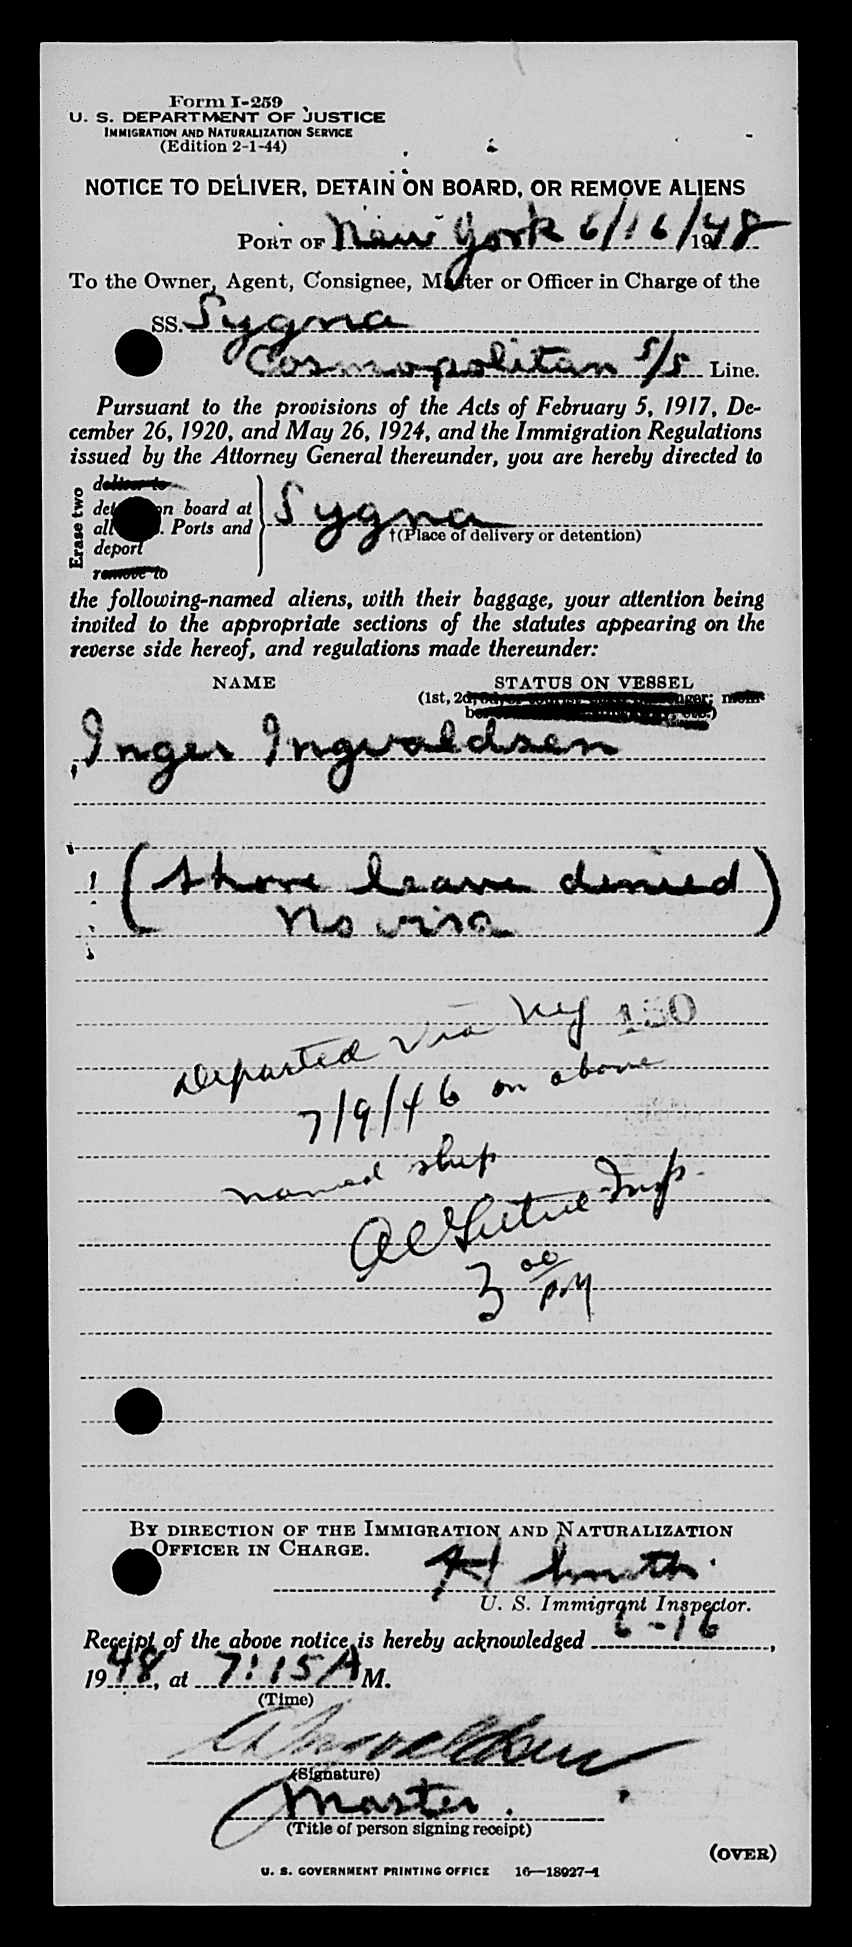 Form I-259
U. S. DEPARTMENT OF JUSTICE
IMMIGRATION AND NATURALIZATION SERVICE
(Edition 2-1-44)
NOTICE TO DELIVER, DETAIN ON BOARD, OR REMOVE ALIENS
PORT OF New York 6/16/1948
To the Owner, Agent, Consignee, Master or Officer in Charge of the
SS. Sygna
Cosmopolitan S/S Line.
Pursuant to the provisions of the Acts of February 5, 1917, De-
cember 26, 1920, and May 26, 1924, and the Immigration Regulations
issued by the Attorney General thereunder, you are hereby directed to
Erase two
deliver to
on board at
all Ports and
deport
remove to
Sygna
†(Place of delivery or detention)
the following-named aliens, with their baggage, your attention being
invited to the appropriate sections of the statutes appearing on the
reverse side hereof, and regulations made thereunder:
NAME STATUS ON VESSEL
(1st, 2d,
Inger Ingvaldsen
(Shore leave denied)
No visa
Departed via NY 150
7/9/46 on above
named ship
Insp.
3 00 PM
BY DIRECTION OF THE IMMIGRATION AND NATURALIZATION
OFFICER IN CHARGE.
H Smith
U. S. Immigrant Inspector.
Receipt of the above notice is hereby acknowledged 6-16,
1948, at 7:15 A M.
(Time)
Ingvaldsen
(Signature)
Master.
(Title of person signing receipt)
(OVER)
U. S. GOVERNMENT PRINTING OFFICE 16—18927-1